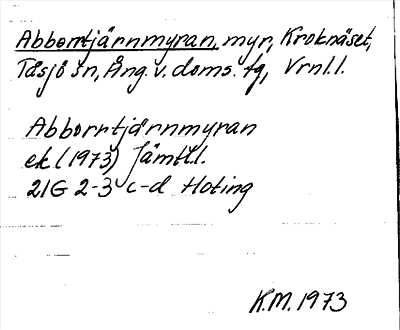 Abborrtjärnmyran, myr, Kroknäset,
Tåsjö sn, Ång. v. doms. tg, Vrnl. l.
Abborrtjärnmyran
ek. (1973) Jämtl. l.
21G 2-3 c-d Hoting
K.M. 1973